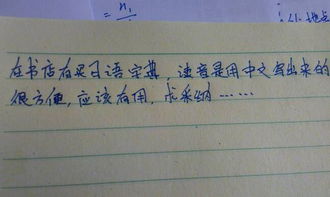 = n₁
在书店有买日语字典，读音是用中文写出来的
很方便，应该有用，求采纳……